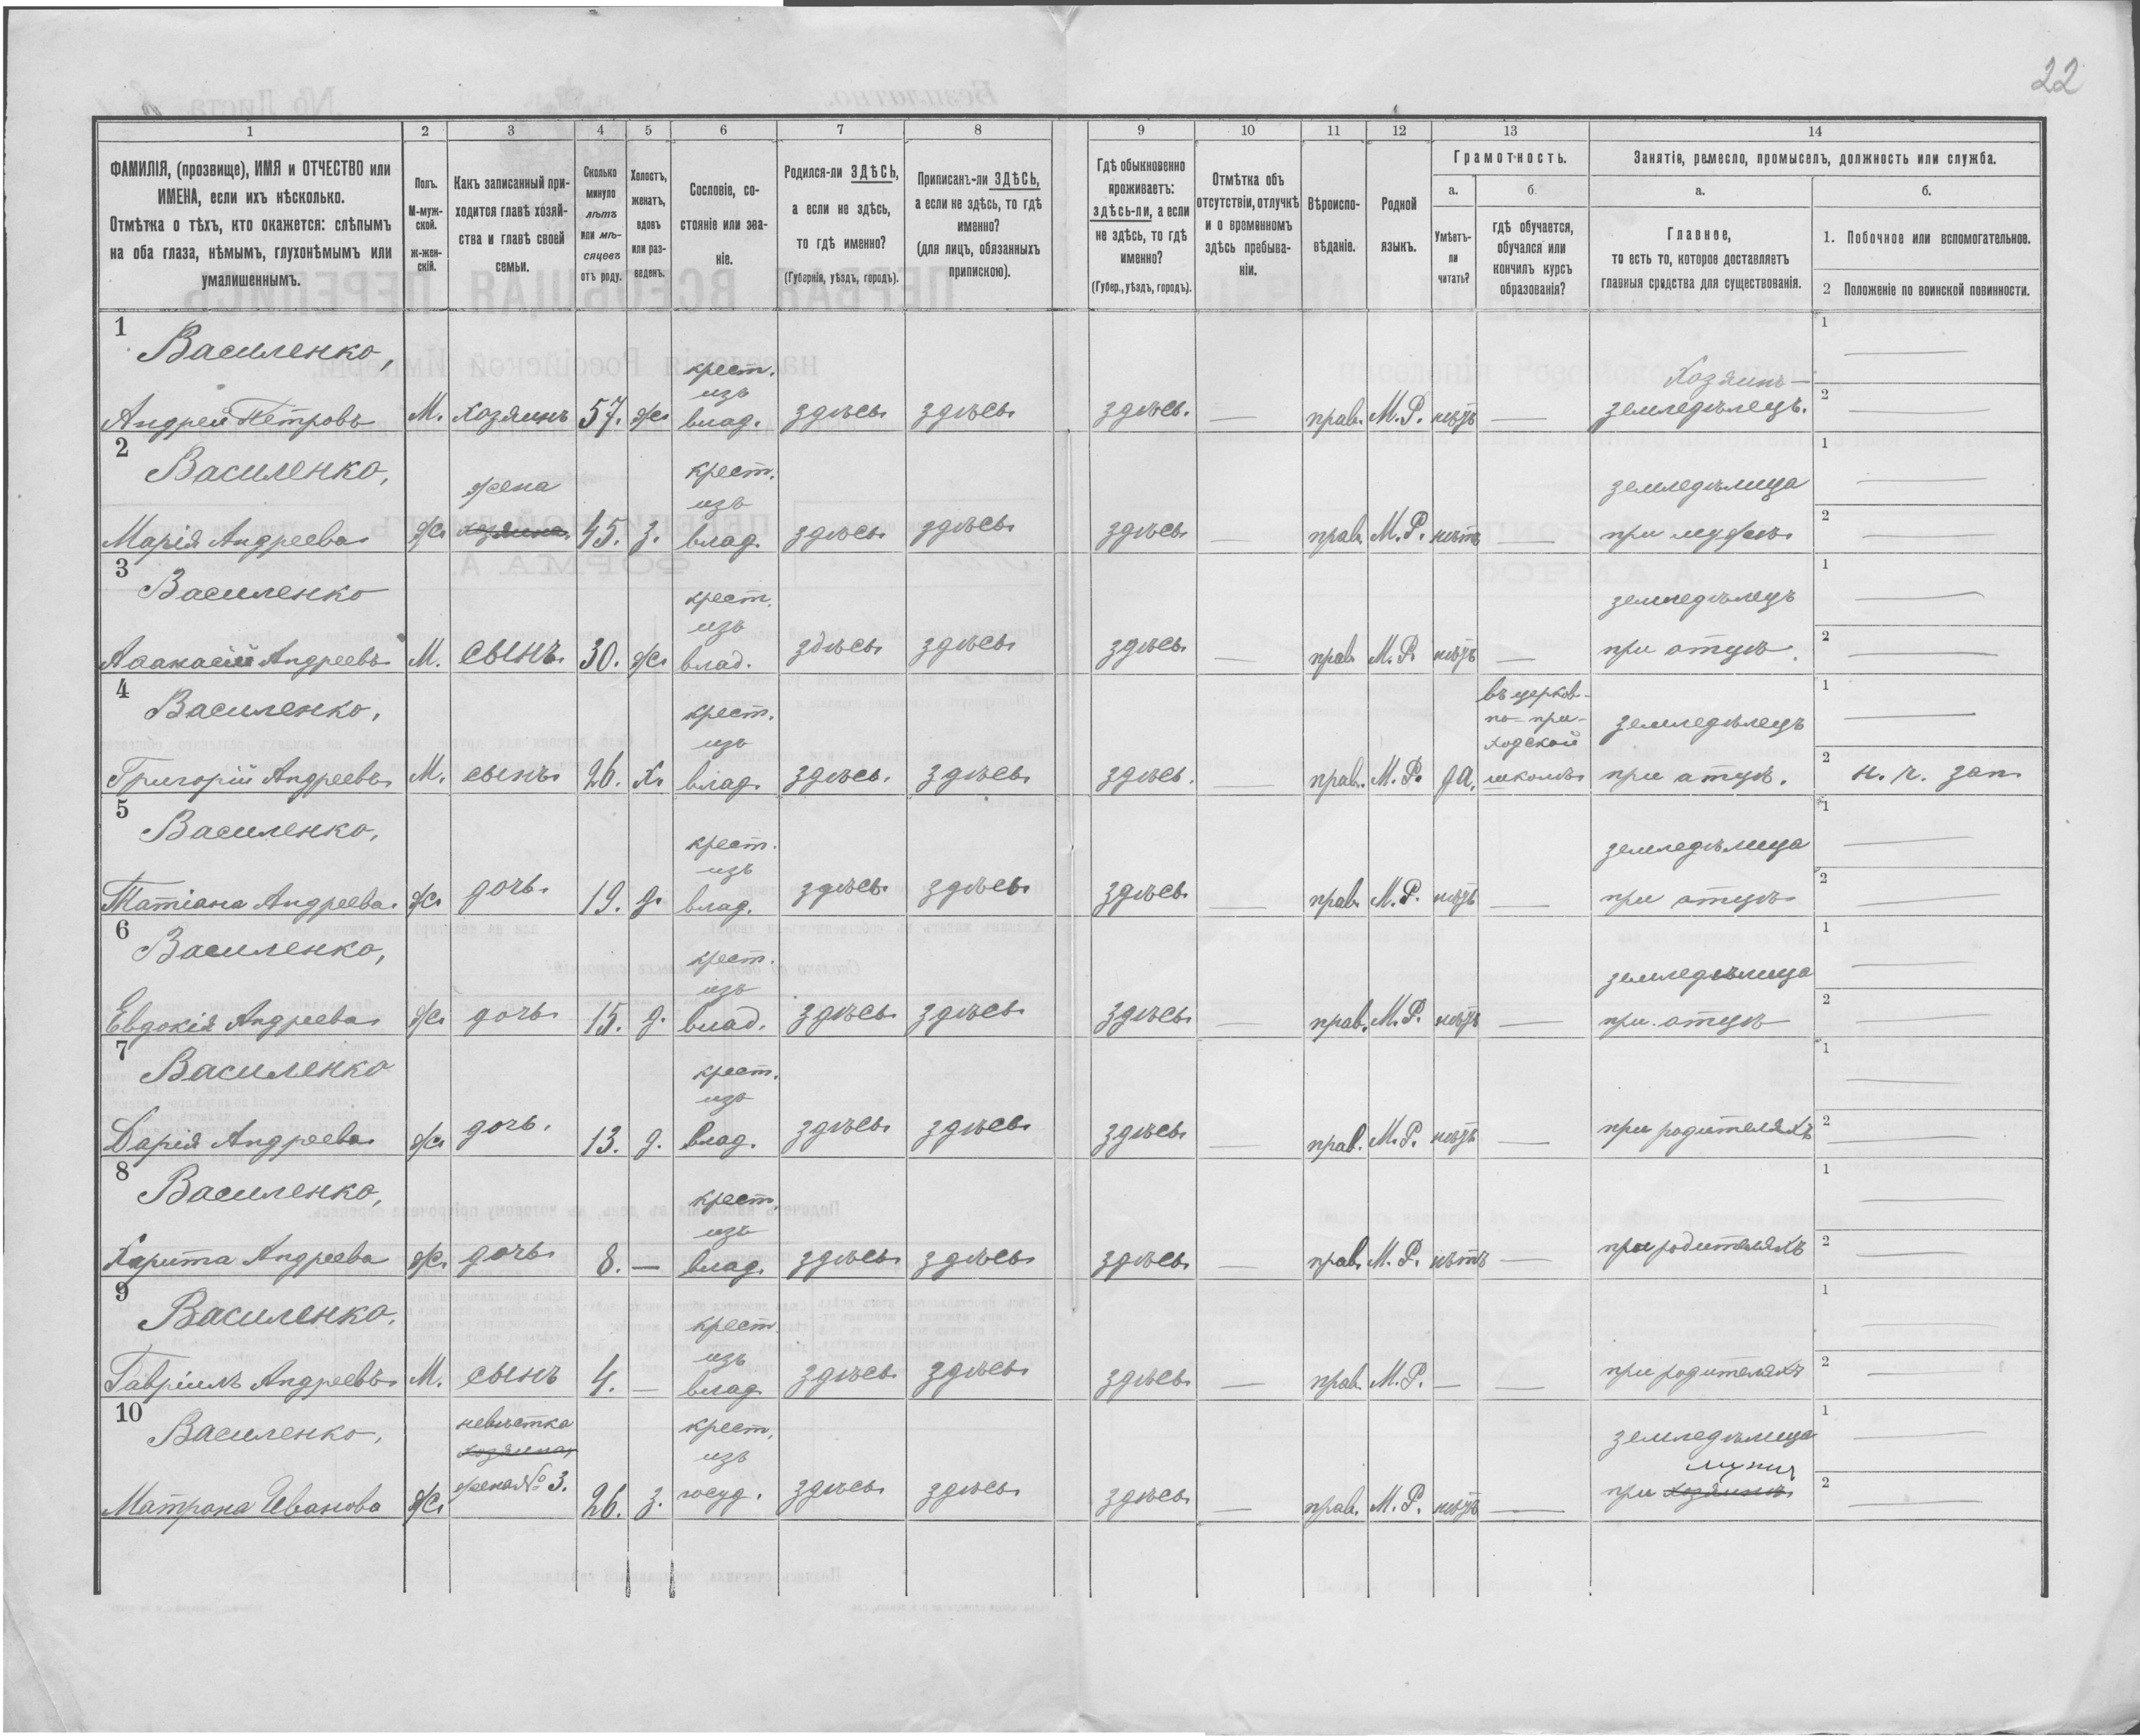 22
1 2 3 4 5 6 7 8 9 10 11 12 13 14
ФАМИЛІЯ, (прозвище), ИМЯ и ОТЧЕСТВО или
ИМЕНА, если ихъ нѣсколько.
Отмѣтка о тѣхъ, кто окажется: слѣпымъ
на оба глаза, нѣмымъ, глухонѣмымъ или
умалишеннымъ.
Полъ.
М-муж-
ской.
ж-жен-
скій.
Какъ записанный при-
ходится главѣ хозяй-
ства и главѣ своей
семьи.
Сколько
минуло
лѣтъ
или мѣ-
сяцевъ
отъ роду.
Холостъ,
женатъ,
вдовъ
или раз-
веденъ.
Сословіе, со-
стояніе или зва-
ніе.
Родился-ли ЗДѢСЬ,
а если не здѣсь,
то гдѣ именно?
(Губернія, уѣздъ, городъ).
Приписанъ-ли ЗДѢСЬ,
а если не здѣсь, то гдѣ
именно?
(для лицъ, обязанныхъ
припискою).
Гдѣ обыкновенно
проживаетъ:
здѣсь-ли, а если
не здѣсь, то гдѣ
именно?
(Губер., уѣздъ, городъ).
Отмѣтка объ
отсутствіи, отлучкѣ
и о временномъ
здѣсь пребыва-
ніи.
Вѣроиспо-
вѣданіе.
Родной
языкъ.
Грамотность.
а.
Умѣетъ-
ли
читать?
б.
гдѣ обучается,
обучался или
кончилъ курсъ
образованія?
Занятіе, ремесло, промыселъ, должность или служба.
а.
Главное,
то есть то, которое доставляетъ
главныя средства для существованія.
б.
1. Побочное или вспомогательное.
2 Положеніе по воинской повинности.
1 Василенко, крест. изъ Хозяинъ — 1
Андрей Петровъ М. хозяинъ 57. ж. влад. здѣсь здѣсь здѣсь. — прав. М.Р. нѣтъ — земледѣлецъ. 2
2 Василенко, жена крест. изъ земледѣлица 1
Марія Андреева ж. хозяина 45. з. влад. здѣсь здѣсь здѣсь — прав. М.Р. нѣтъ — при мужѣ 2
3 Василенко крест. изъ земледѣлецъ 1
Аѳанасій Андреевъ М. сынъ 30. ж. влад. здѣсь здѣсь здѣсь — прав. М.Р. нѣтъ — при отцѣ. 2
4 Василенко, крест. изъ въ церков-
но-при-
ходской земледѣлецъ 1
Григорій Андреевъ М. сынъ 26. х. влад. здѣсь. здѣсь здѣсь. — прав. М.Р. да, школѣ при отцѣ. 2 н. ч. зап.
5 Василенко, крест. изъ земледѣлица 1
Татіана Андреева ж. дочь 19. д. влад. здѣсь здѣсь здѣсь — прав. М.Р. нѣтъ — при отцѣ 2
6 Василенко, крест. изъ земледѣлица 1
Евдокія Андреева ж. дочь 15. д. влад. здѣсь здѣсь здѣсь — прав. М.Р. нѣтъ — при отцѣ 2
7 Василенко крест. изъ 1
Дарія Андреева ж. дочь. 13. д. влад. здѣсь здѣсь здѣсь — прав. М.Р. нѣтъ — при родителяхъ 2
8 Василенко, крест. изъ 1
Харита Андреева ж. дочь 8. — влад. здѣсь здѣсь здѣсь — прав. М.Р. нѣтъ — при родителяхъ 2
9 Василенко, крест. изъ 1
Гавріилъ Андреевъ М. сынъ 4. — влад. здѣсь здѣсь здѣсь — прав. М.Р. — — при родителяхъ 2
10 Василенко, невѣстка хозяина, крест. изъ земледѣлица 1
Матрона Иванова ж. жена № 3. 26. з. госуд. здѣсь здѣсь здѣсь — прав. М.Р. нѣтъ — при хозяинѣ 2